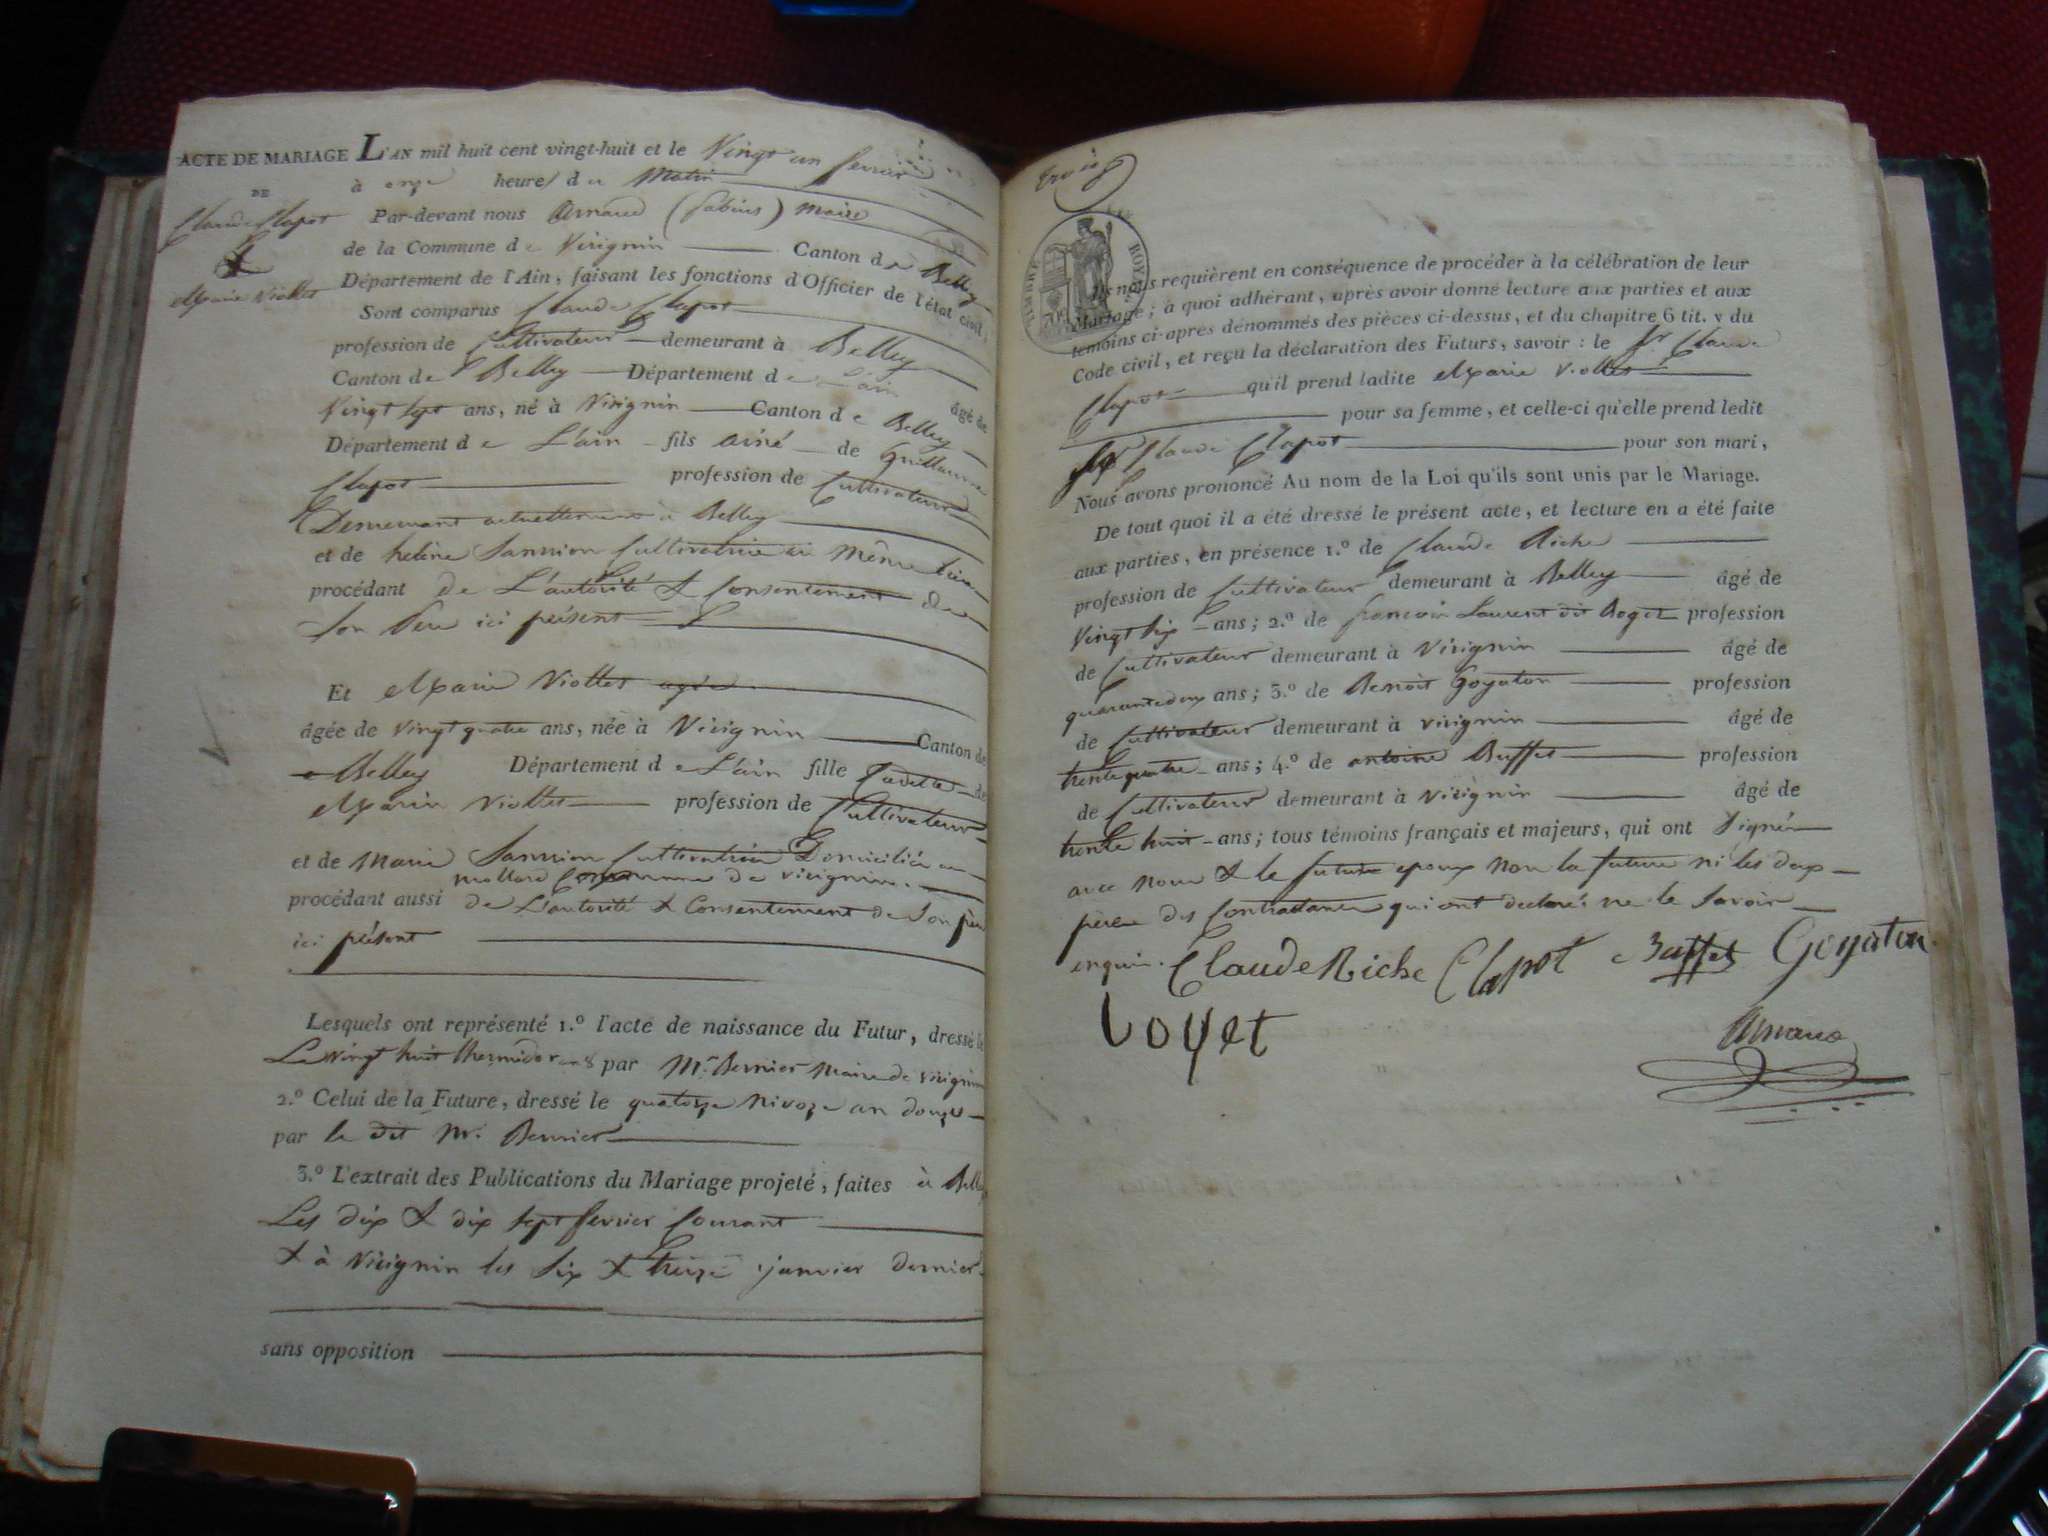 ACTE DE MARIAGE L'AN mil huit cent vingt-huit et le Vingt un fevrier
DE
à onze heures du Matin
Claude Clapot
Par-devant nous Arnaud (fabius) maire
&
de la Commune de Virignin Canton de Belley
Marie Viollet
Département de l'Ain, faisant les fonctions d'Officier de l'état civil,
Sont comparus Claude Clapot
profession de Cultivateur demeurant à Belley
Canton de Belley Département de L'ain âgé de
Vingt sept ans, né à Virignin Canton de Belley
Département de L'ain fils ainé de Guillaume
Clapot profession de Cultivateur
Demeurant actuellement a Belley
et de heléne Cultivatrice au Même lieu
procédant de L'autorité & Consentement de
Son Pere ici présent
Et Marie Viollet agée
âgée de vingt quatre ans, née à Virignin Canton de
Belley Département de L'ain fille Cadette de
Marin Viollet profession de Cultivateur
et de Marie Cultivatrice Domiciliés au
mollard Commune de virignin.
procédant aussi de L'autorité & Consentement de Son père
ici présent
Lesquels ont représenté 1.º l'acte de naissance du Futur, dressé le
Le vingt huit thermidor an 8 par Mr. Bernier Maire de virignin
2.º Celui de la Future, dressé le quatorze Nivoze an douze
par le dit Mr. Bernier
3.º L'extrait des Publications du Mariage projeté, faites à Belley
Les dix & dix sept fevrier Courant
& à Virignin les Six & treize janvier dernier
sans opposition
TIMBRE ROYAL
Ils nous requièrent en conséquence de procéder à la célébration de leur
Mariage; à quoi adhérant, après avoir donné lecture aux parties et aux
témoins ci-après dénommés des pièces ci-dessus, et du chapitre 6 tit. v du
Code civil, et reçu la déclaration des Futurs, savoir: le Sr. Claude
Clapot qu'il prend ladite Marie viollet
pour sa femme, et celle-ci qu'elle prend ledit
Claude Clapot pour son mari,
Nous avons prononcé Au nom de la Loi qu'ils sont unis par le Mariage.
De tout quoi il a été dressé le présent acte, et lecture en a été faite
aux parties, en présence 1.º de Claude Riche
profession de Cultivateur demeurant à Belley âgé de
Vingt Six ans; 2.º de françois Laurent dit Roget profession
de Cultivateur demeurant à Virignin âgé de
quarante deux ans; 3.º de Benoit Goyaton profession
de Cultivateur demeurant à virignin âgé de
trente quatre ans; 4.º de antoine Buffet profession
de Cultivateur demeurant à virignin âgé de
trente huit ans; tous témoins français et majeurs, qui ont Signé
avec nous & le futur epoux Non la future ni les deux
peres des Contractans qui ont declaré ne le Savoir
enquis. Claude Riche Clapot Buffet Goyaton
Arnaud